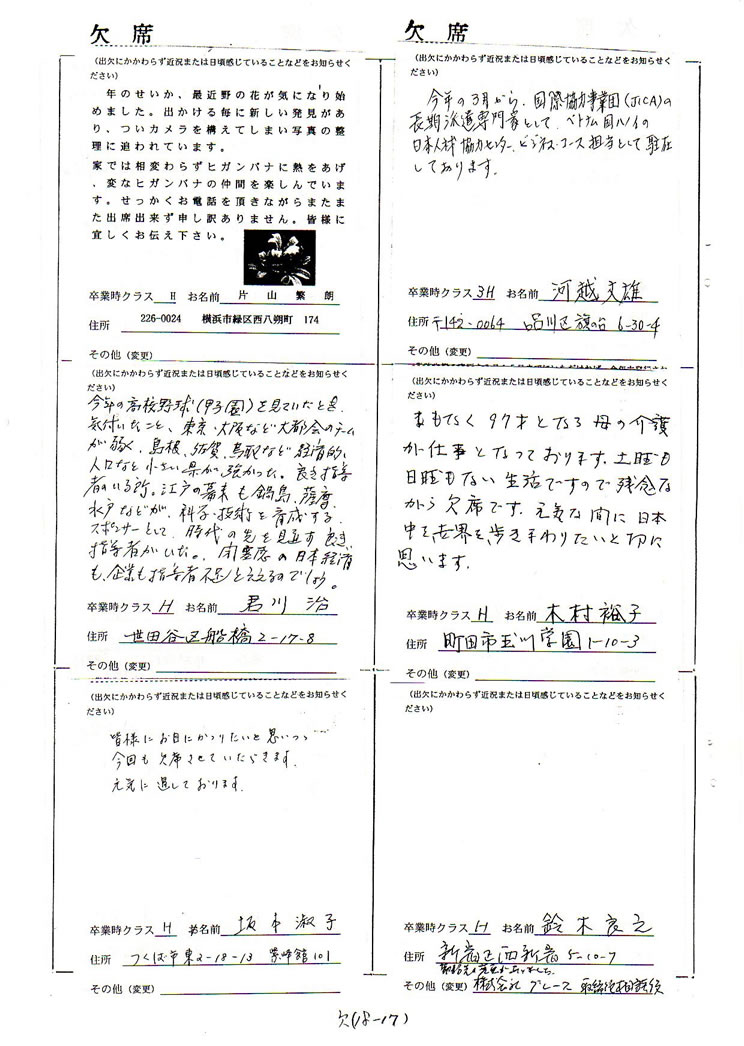 欠席
(出欠にかかわらず近況または日頃感じていることなどをお知らせく
ださい)
年のせいか、最近野の花が気になり始
めました。出かける毎に新しい発見があ
り、ついカメラを構えてしまい写真の整
理に追われています。
家では相変わらずヒガンバナに熱をあげ
、変なヒガンバナの仲間を楽しんでいま
す。せっかくお電話を頂きながらまたま
た出席出来ず申し訳ありません。皆様に
宜しくお伝え下さい。
卒業時クラス H お名前 片山 繁朗
住所 226-0024 横浜市緑区西八朔町 174
その他(変更)
欠席
(出欠にかかわらず近況または日頃感じていることなどをお知らせく
ださい)
今年の3月から、国際協力事業団(JICA)の
長期派遣専門家として、ベトナム国ハノイの
日本人材協力センター、ビジネス・コース担当として駐在
しております。
卒業時クラス 3H お名前 河越文雄
住所 〒142-0064 品川区旗の台 6-30-4
その他(変更)
(出欠にかかわらず近況または日頃感じていることなどをお知らせく
ださい)
今年の高校野球(甲子園)を見ていたとき、
気付いたこと、東京・大阪など大都会のチーム
が弱く、島根、佐賀、鳥取など経済的、
人口など小さい県が強かった。良き指導
者のいる所。江戸の幕末も鍋島、薩摩、
水戸などが、科学・技術を育成する
スポンサーとして、時代の先を見直す良き
指導者がいた。閉塞感の日本経済
も、企業も指導者不足と云えるのでしょう。
卒業時クラス H お名前 君川 治
住所 世田谷区船橋 2-17-8
その他(変更)
(出欠にかかわらず近況または日頃感じていることなどをお知らせく
ださい)
まもなく97才となる母の介護
が仕事となっております。土曜も
日曜もない生活ですので残念な
がら欠席です。元気な間に日本
中を世界を歩きまわりたいと切に
思います。
卒業時クラス H お名前 木村裕子
住所 町田市玉川学園1-10-3
その他(変更)
(出欠にかかわらず近況または日頃感じていることなどをお知らせく
ださい)
皆様にお目にかかりたいと思いつつ
今回も欠席させていただきます。
元気に過しております。
卒業時クラス H お名前 坂本淑子
住所 つくば市東2-18-13 紫峰館101
その他(変更)
(出欠にかかわらず近況または日頃感じていることなどをお知らせく
ださい)
卒業時クラス H お名前 鈴木良之
住所 新宿区西新宿5-10-7
その他(変更) 株式会社 グレース 取締役相談役
欠(18-17)